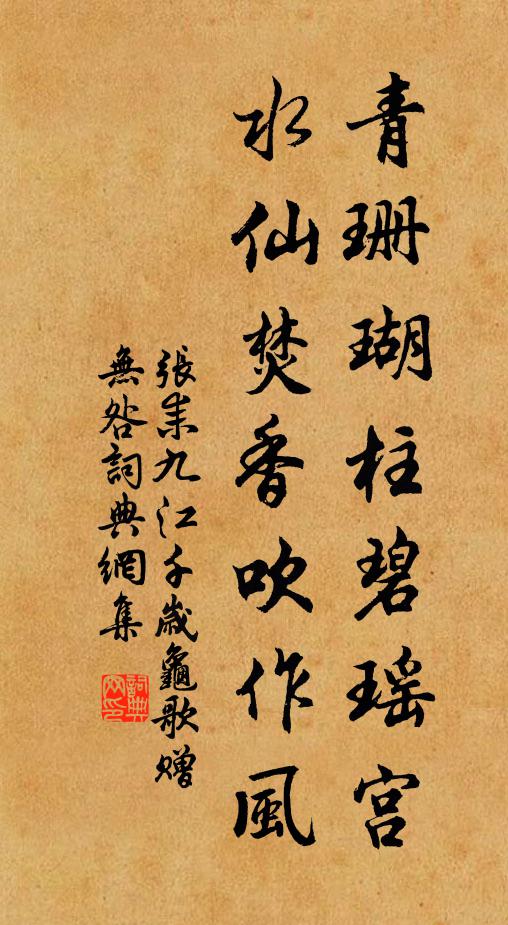 青珊瑚柱碧瑶宫
水仙焚香吹作風
張耒九江千歲龜歌贈
無咎詞典網集
詞典網印